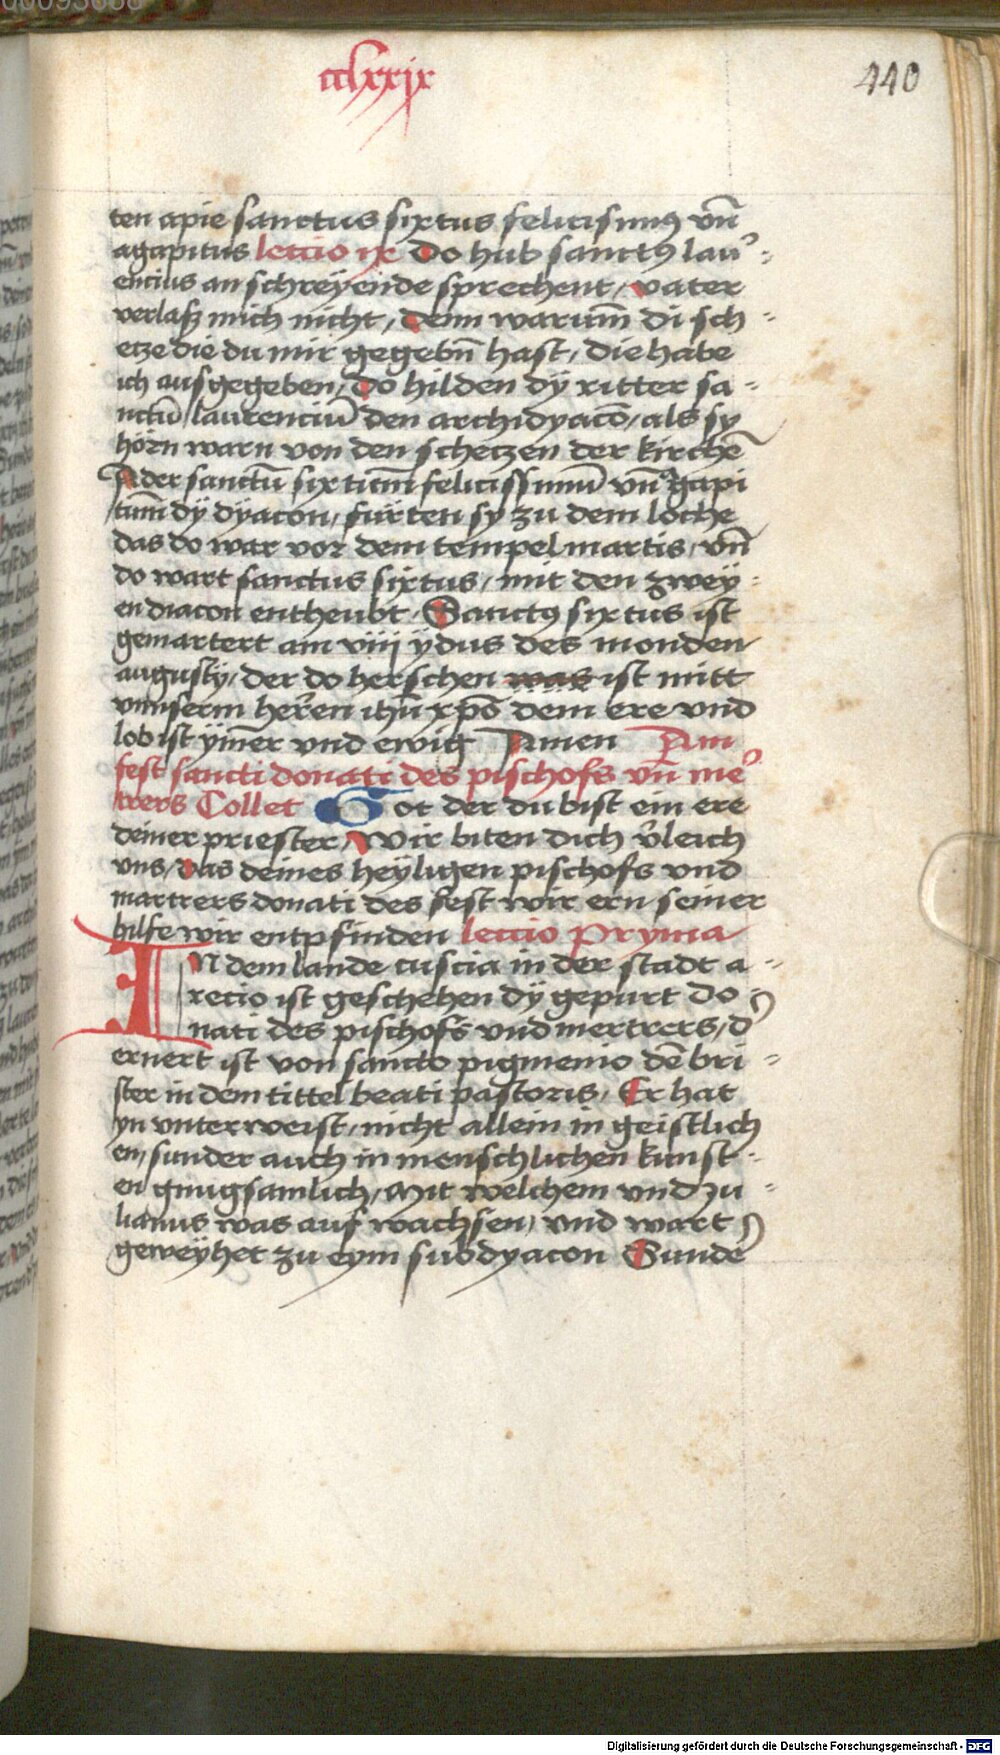 00093688
cclxxix
440
ten apie sanctus sixtus felicisimꝯ vn̄
agapitus leccio ix Do hub sanctꝯ lau⸗
encius an schreyende sprechent / vater
verlaß mich nicht / denn warum̄ di sch⸗
ecze die du mir gegebn̄ hast / die habe
ich ausgegeben / do hilden dÿ ritter sa⸗
nctū laurenciū den archidyacō / als sy
hörn warn von den scheczen der kirchē
Ader sanctū sixtum̄ felicissimū vn̄ agapi
tum̄ dÿ dyacon / fürten sy zu dem loche
das do war vor dem tempel martis / vn̄
do wart sanctus sixtus / mit den zwey⸗
en diacon entheubt / Sanctꝯ sixtus ist
gemartert am viij ÿdus des monden
augustÿ / der do herschen was ist mitt
vnnserm herren ihū xp̄o dem ere vnd
lob ist ÿm̄er vnd ewig Amen Am
fest sancti donati des pischofs vn̄ me⸗
trers Collet Got der du bist ein ere
deiner priester / Wir biten dich v̄leich
vns / das deines heÿligen pischofs vnd
martrers donati des fest wir ern seiner
hilfe wir entpfinden leccio Pryma
IN dem lande tuscia in der stadt a⸗
recio ist geschehen dÿ gepurt do⸗
nati des pischofs vnd mertrers / d'
ernert ist von sancto pigmenio dē bri⸗
ster in dem tittel beati pastoris / Er hat
yn vnterweist / nicht allein in geistlich
en / sunder auch in menschlichen kunst⸗
en gnugsamlich / Mit welchem vnd Ju⸗
lianus was auf wachsen / vnd wart
geweÿhet zu eym subdyacon Sunde'
Digitalisierung gefördert durch die Deutsche Forschungsgemeinschaft - DFG